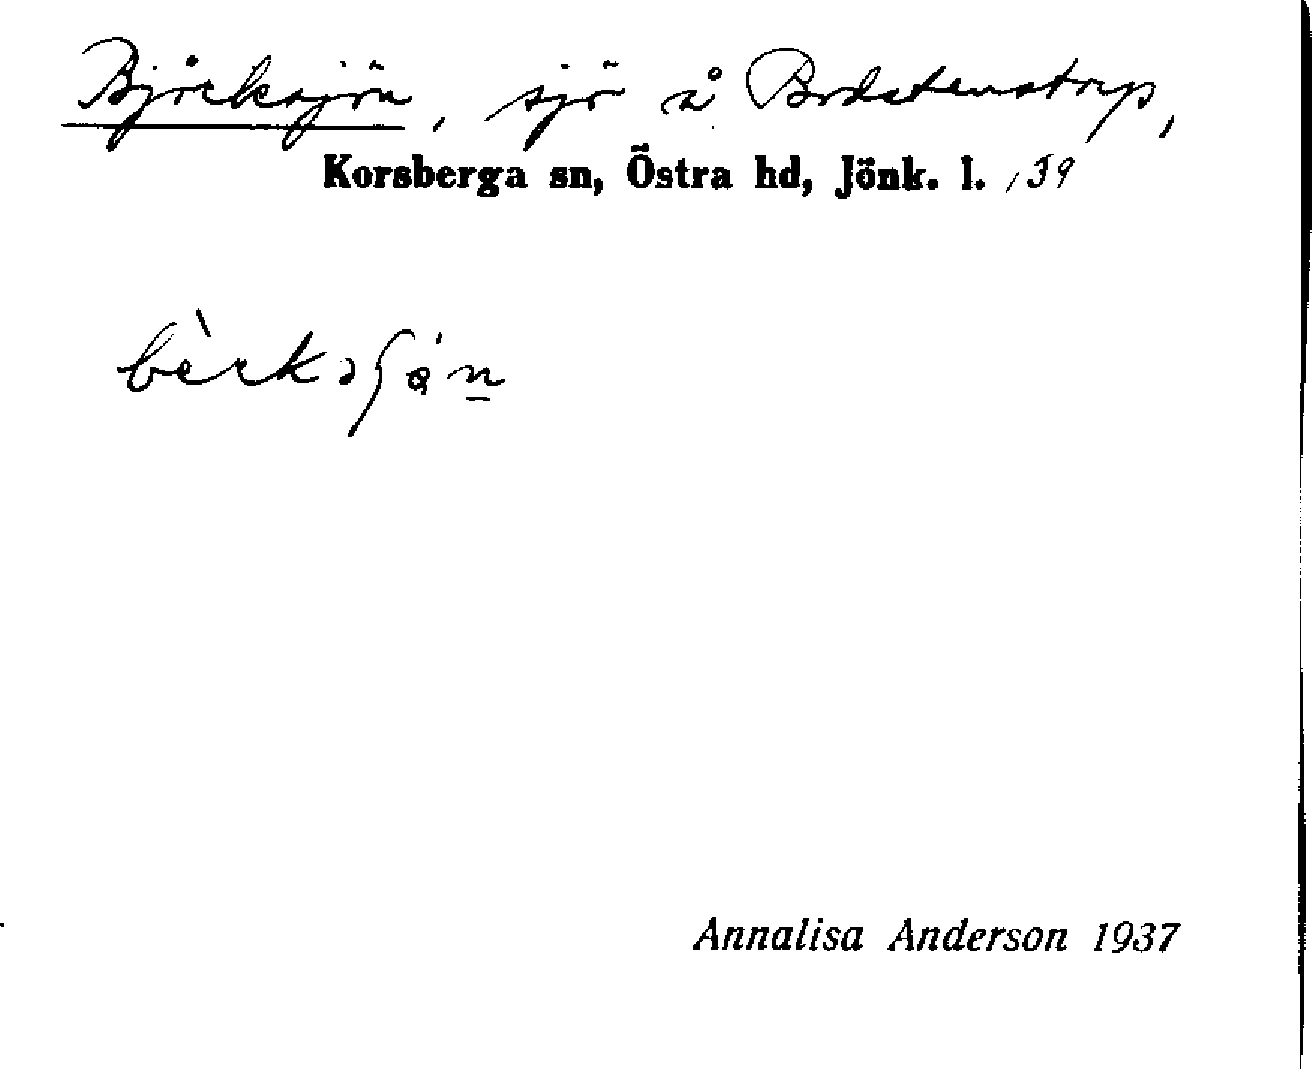 Björksjön, sjö å Bodstenstorp,
Korsberga sn, Östra hd, Jönk. l. ,39
Annalisa Anderson 1937